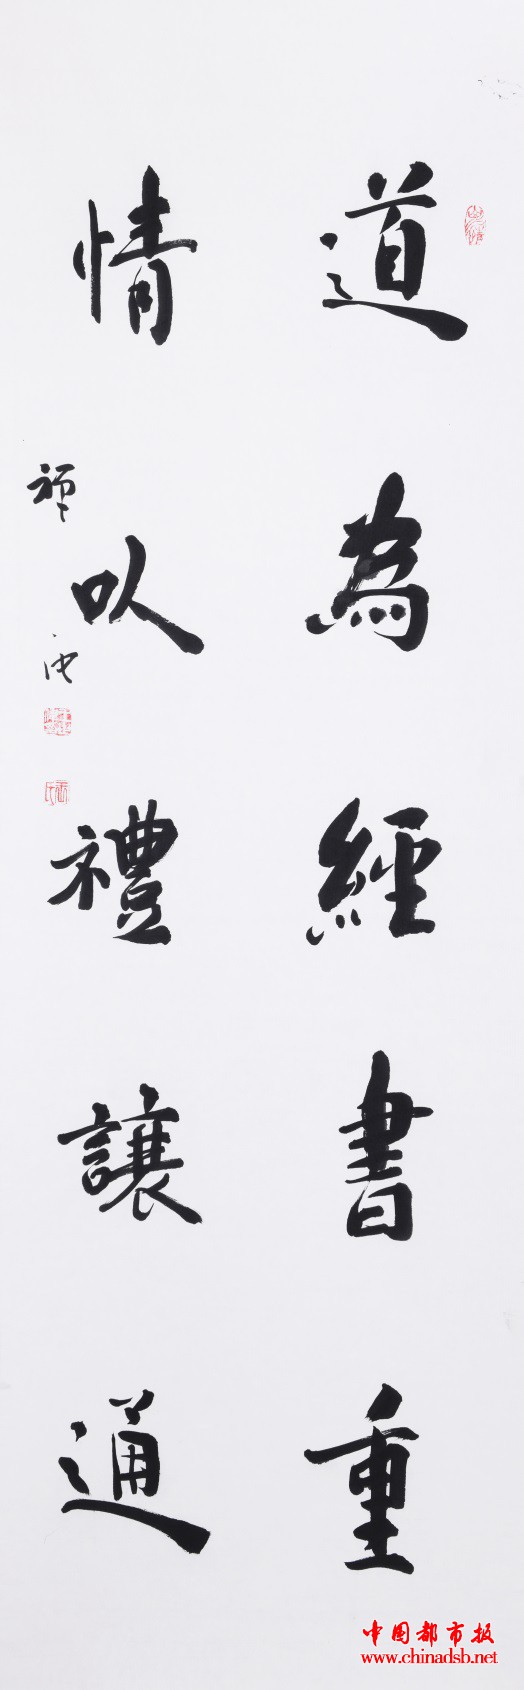 道為經書重
情以禮讓通
中国都市报
www.chinadsb.net